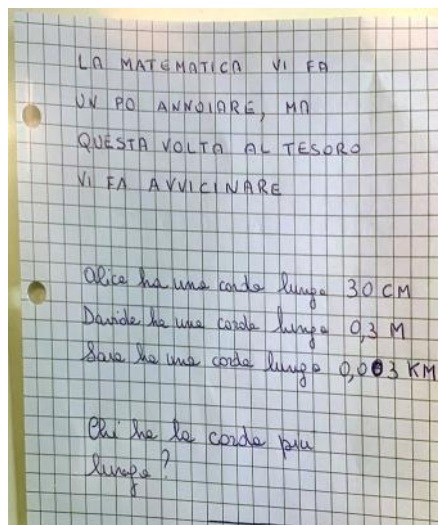 LA MATEMATICA VI FA
UN PO ANNOIARE, MA
QUESTA VOLTA AL TESORO
VI FA AVVICINARE
Alice ha una corda lunga 30 CM
Davide ha una corda lunga 0,3 M
Sara ha una corda lunga 0,003 KM
Chi ha la corda più
lunga?